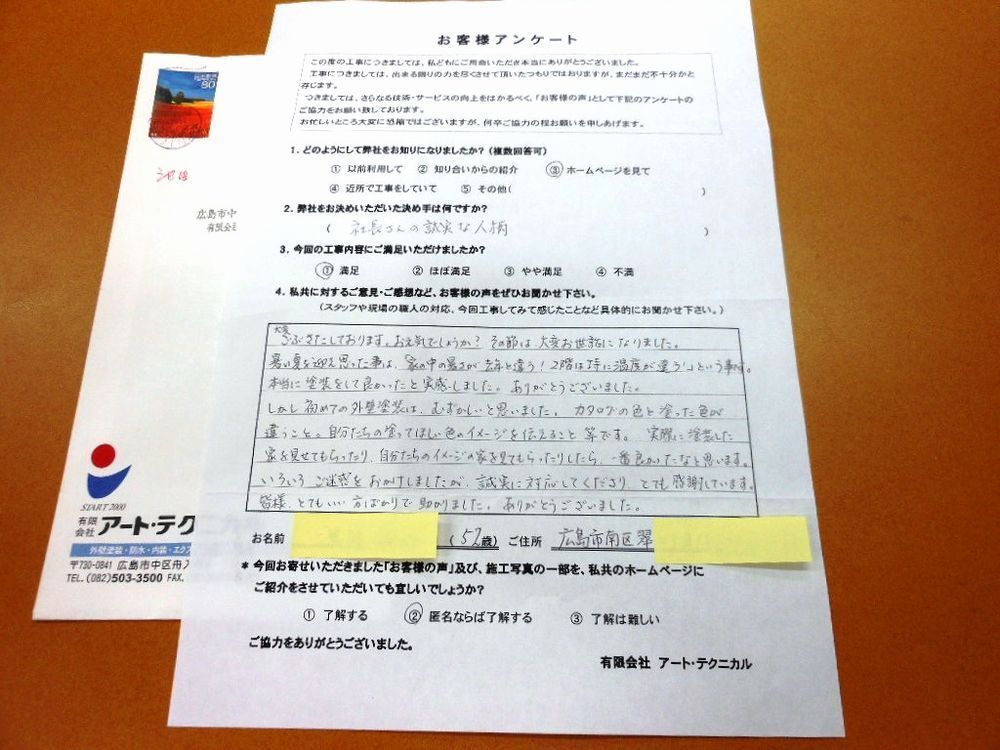 お客様アンケート
この度の工事につきましては、私どもにご用命いただき本当にありがとうございました。
工事につきましては、出来る限りの力を尽くさせて頂いたつもりではおりますが、まだまだ不十分かと
存じます。
つきましては、さらなる技術・サービスの向上をはかるべく、「お客様の声」として下記のアンケートの
ご協力をお願い致しております。
お忙しいところ大変に恐縮ではございますが、何卒ご協力の程お願いを申しあげます。
1. どのようにして弊社をお知りになりましたか？（複数回答可）
① 以前利用して ② 知り合いからの紹介 ③ ホームページを見て
④ 近所で工事をしていて ⑤ その他( )
2. 弊社をお決めいただいた決め手は何ですか？
( 社長さんの誠実な人柄 )
3. 今回の工事内容にご満足いただけましたか？
① 満足 ② ほぼ満足 ③ やや満足 ④ 不満
4. 私共に対するご意見・ご感想など、お客様の声をぜひお聞かせ下さい。
（スタッフや現場の職人の対応、今回工事してみて感じたことなど具体的にお聞かせ下さい。）
大変
ごぶさたしております。お元気でしょうか？ その節は、大変お世話になりました。
暑い夏を迎え思った事は、「家の中の暑さが去年と違う！2階は特に温度が違う！」という事です。
本当に塗装をして良かったと実感しました。ありがとうございました。
しかし初めての外壁塗装は、むずかしいと思いました。カタログの色と塗った色が
違うこと。自分たちの塗ってほしい色のイメージを伝えること 等です。 実際に塗装した
家を見せてもらったり、自分たちのイメージの家を見てもらったりしたら、一番良かったなと思います。
いろいろ ご迷惑をおかけしましたが、誠実に対応してくださり、とても感謝しています。
皆様、とてもいい方ばかりで助かりました。ありがとうございました。
お名前 (52歳) ご住所 広島市南区翠
* 今回お寄せいただきました「お客様の声」及び、施工写真の一部を、私共のホームページに
ご紹介をさせていただいても宜しいでしょうか？
① 了解する ② 匿名ならば了解する ③ 了解は難しい
ご協力をありがとうございました。
有限会社 アート・テクニカル
80
広島市中
有限会社
START 2000
有限
会社 アート・テク
外壁塗装・防水・内装・エク
〒730-0841 広島市中区舟入
TEL.(082)503-3500 FAX.